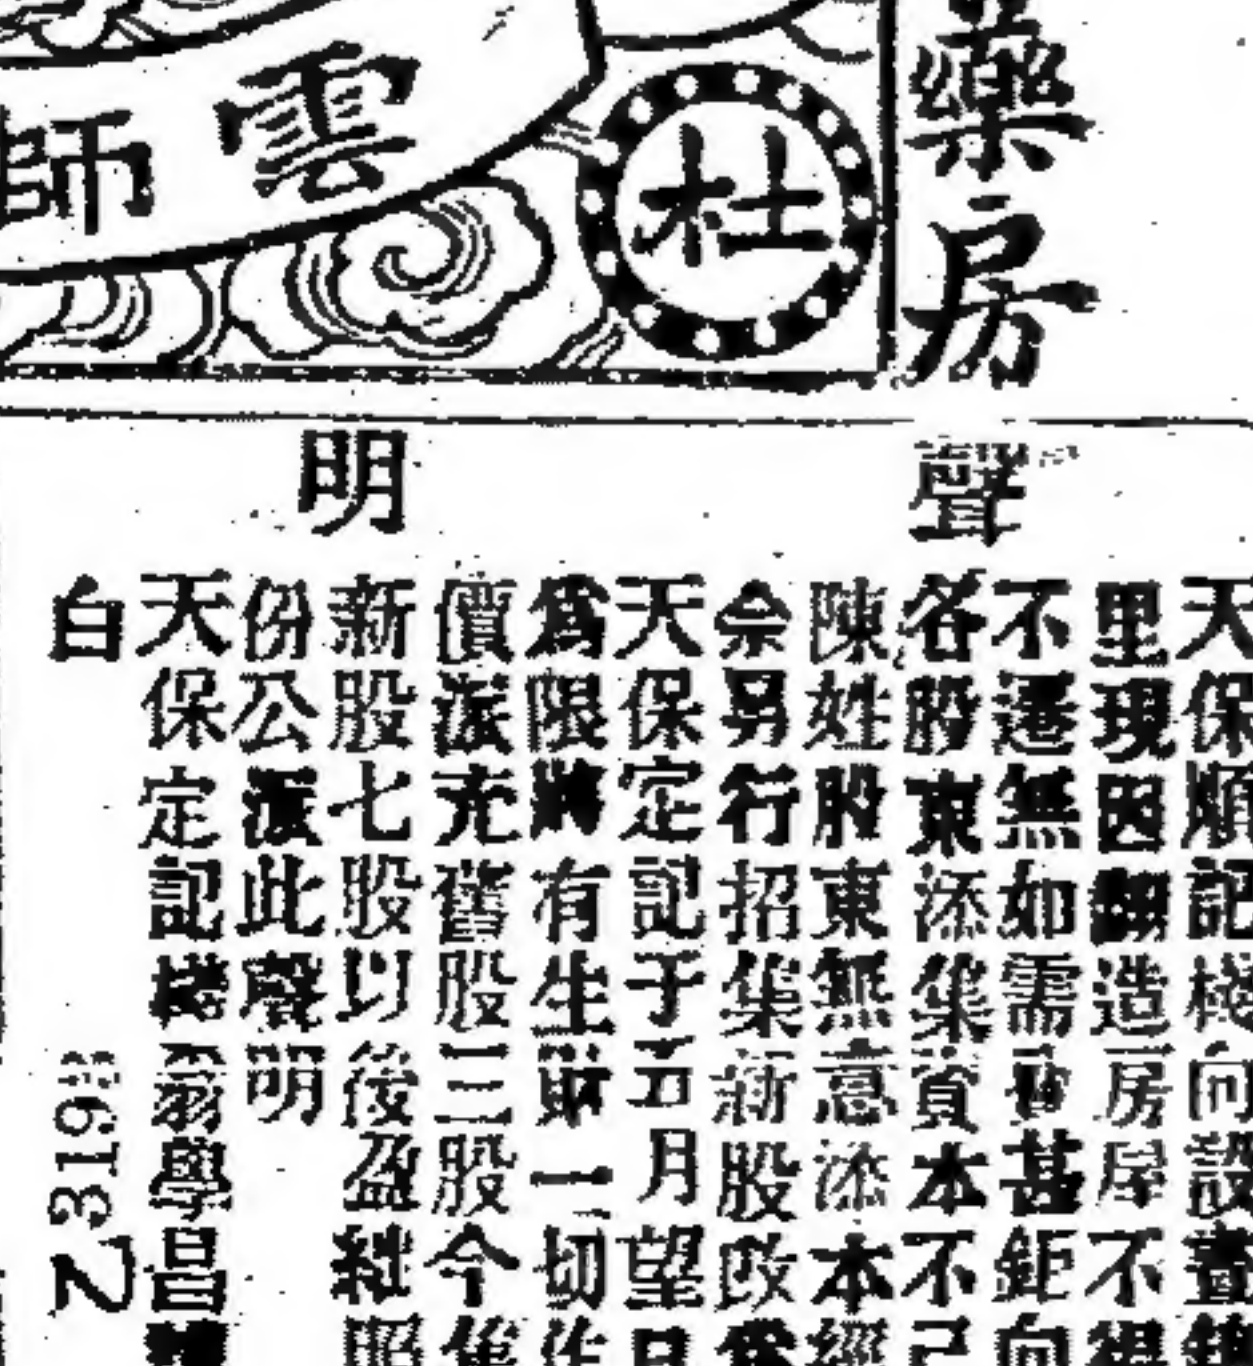 藥房
雲師
杜
聲明
天保順記棧向設
里現因翻造房屋不
不遷無如需甚鉅向
各股東添集資本不已
陳姓股東無意添本經
佘另行招集新股改為
天保定記于五月望日
為限將有生財一切作
價派充舊股三股今後
新股七股以後盈絀照
份公派此聲明
天保定記棧翁學昌
白
Z3198